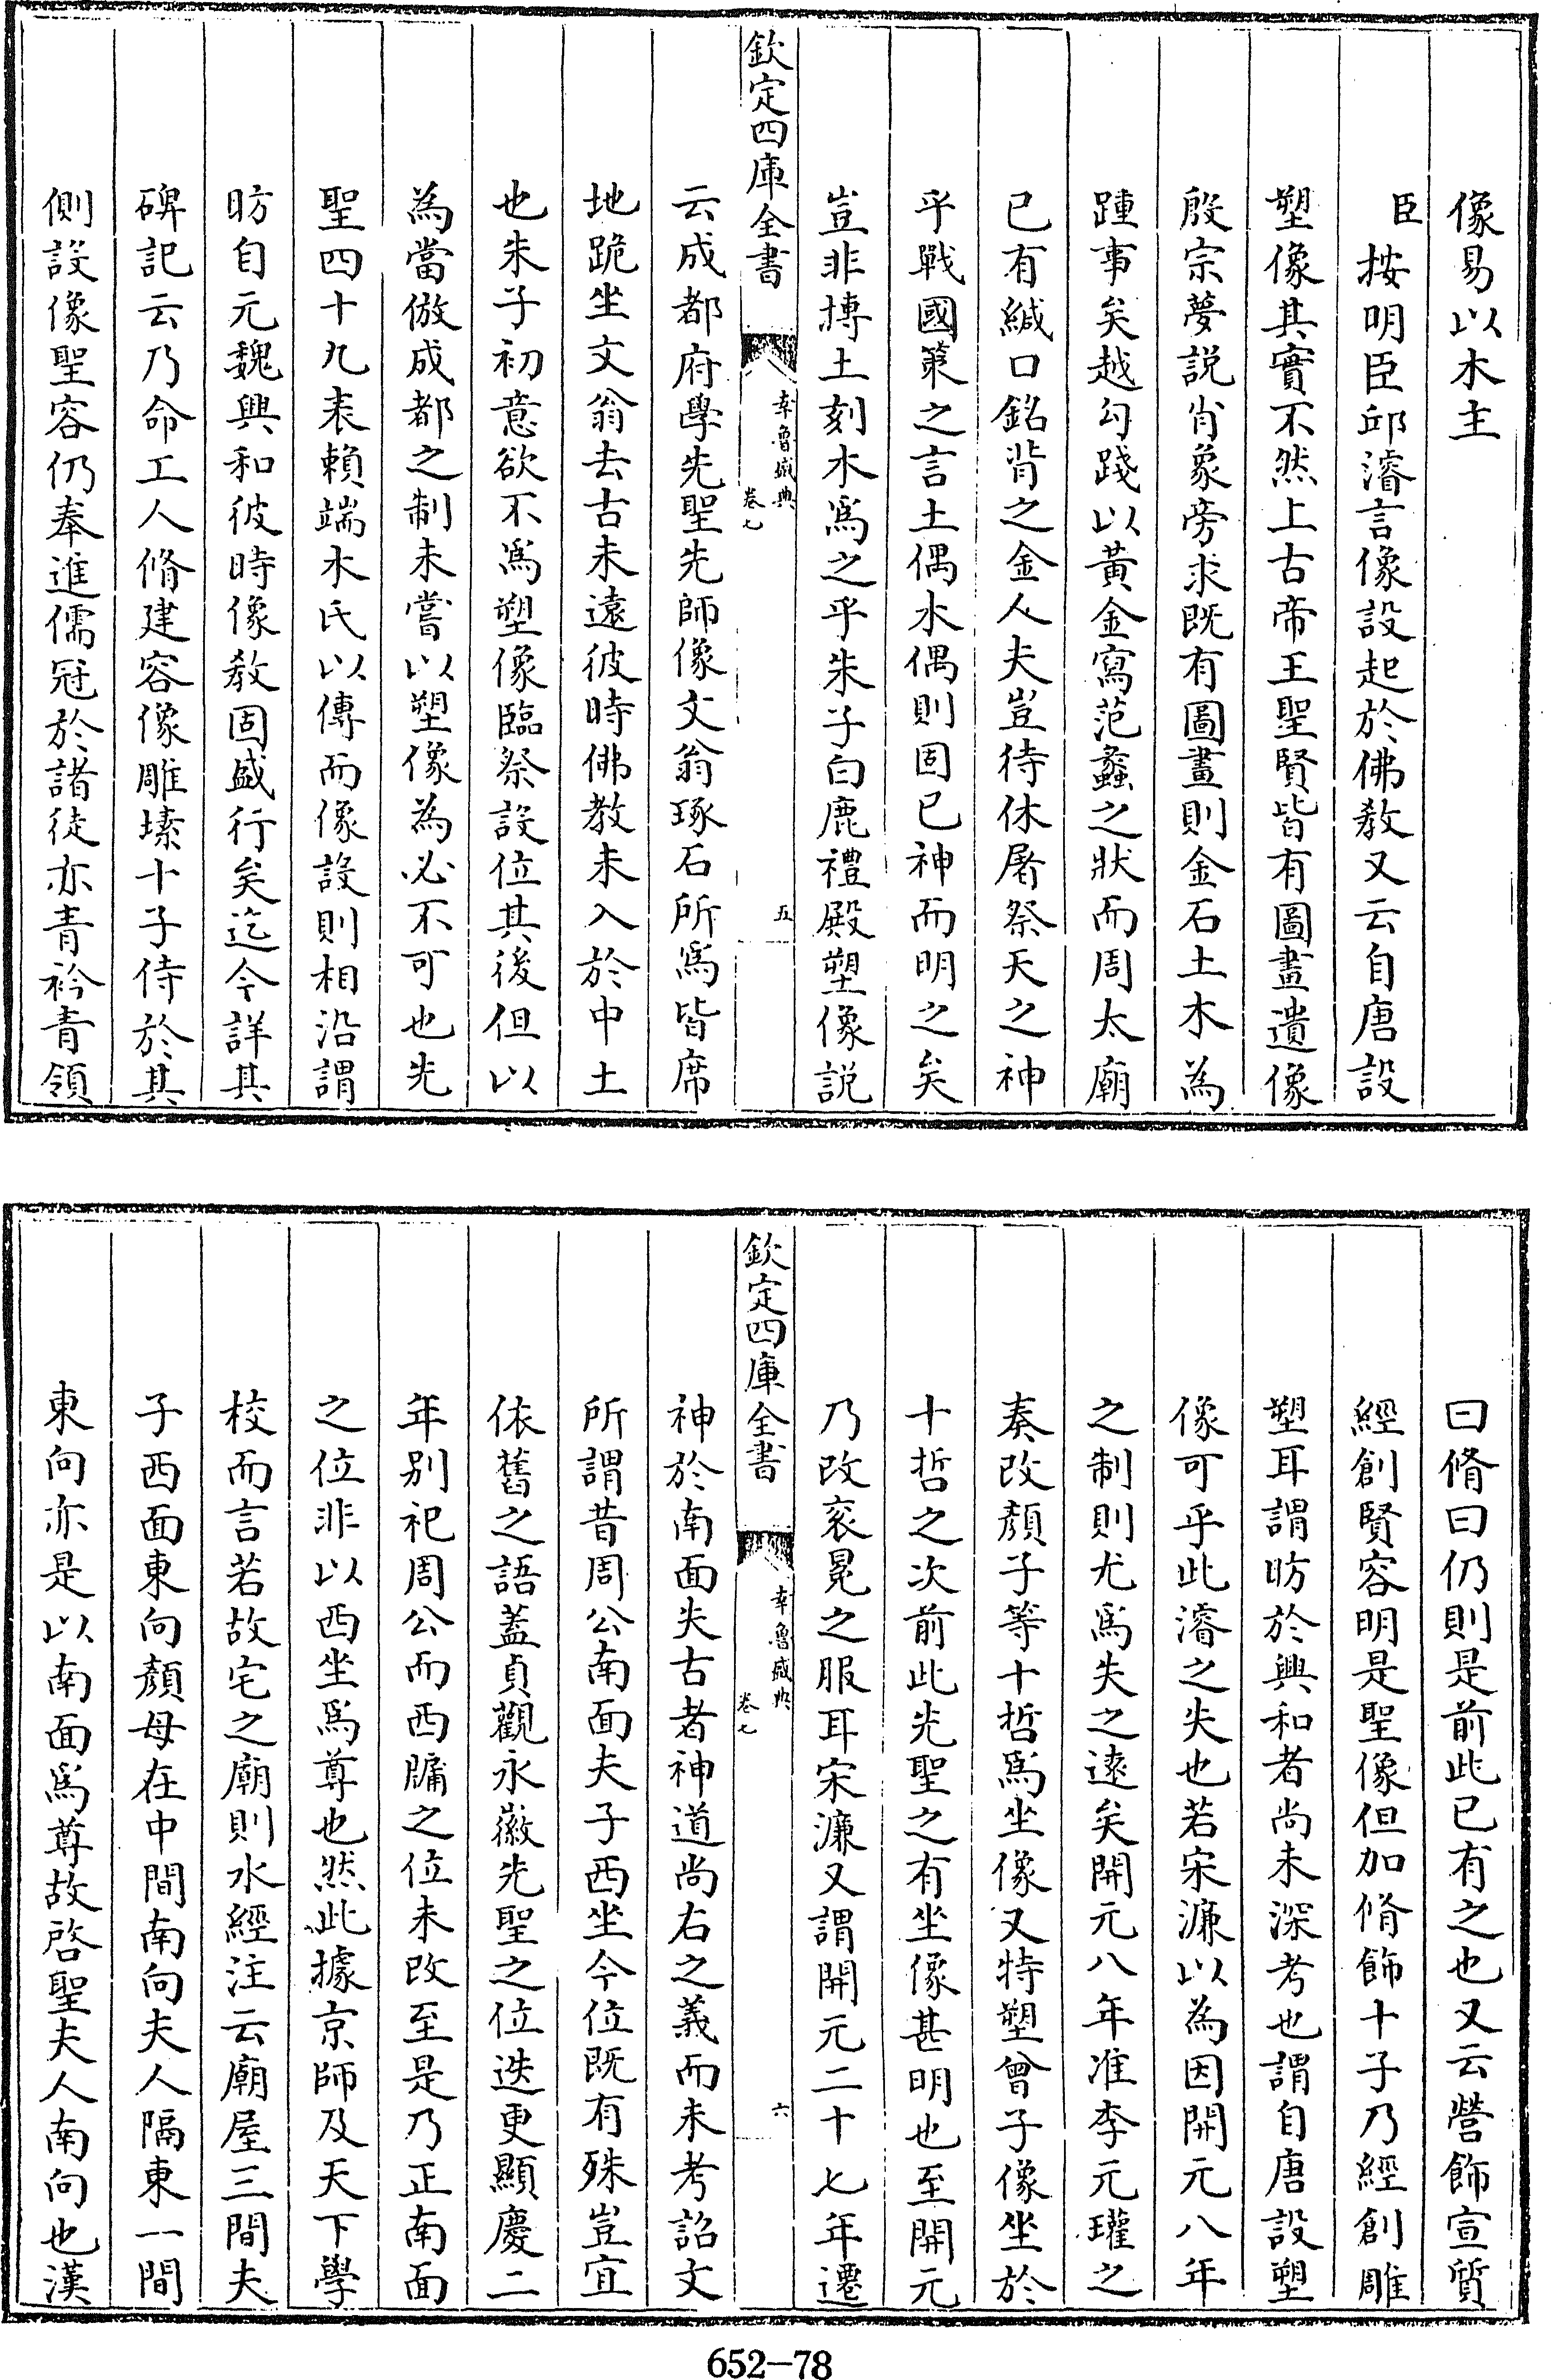 像易以木主
臣按明臣邱濬言像設起於佛教又云自唐設
塑像其實不然上古帝王聖賢皆有圖畫遺像
殷宗夢説肖象旁求既有圖畫則金石土木為
踵事矣越勾踐以黃金寫范蠡之狀而周太廟
已有緘口銘背之金人夫豈待休屠祭天之神
乎戰國策之言土偶木偶則固已神而明之矣
豈非摶土刻木爲之乎朱子白鹿禮殿塑像説
欽定四庫全書
幸魯盛典
卷七
五
云成都府學先聖先師像文翁琢石所爲皆席
地跪坐文翁去古未遠彼時佛教未入於中土
也朱子初意欲不爲塑像臨祭設位其後但以
為當倣成都之制未嘗以塑像為必不可也先
聖四十九表賴端木氏以傳而像設則相沿謂
昉自元魏興和彼時像教固盛行矣迄今詳其
碑記云乃命工人脩建容像雕塐十子侍於其
側設像聖容仍奉進儒冠於諸徒亦青衿青領
曰脩曰仍則是前此已有之也又云營飾宣質
經創賢容明是聖像但加脩飾十子乃經創雕
塑耳謂昉於興和者尚未深考也謂自唐設塑
像可乎此濬之失也若宋濂以為因開元八年
之制則尤爲失之遠矣開元八年准李元瓘之
奏改顏子等十哲爲坐像又特塑曾子像坐於
十哲之次前此先聖之有坐像甚明也至開元
乃改衮冕之服耳宋濂又謂開元二十七年遷
欽定四庫全書
幸魯盛典
卷七
六
神於南面失古者神道尚右之義而未考詔文
所謂昔周公南面夫子西坐今位既有殊豈宜
依舊之語蓋貞觀永徽先聖之位迭更顯慶二
年別祀周公而西牖之位未改至是乃正南面
之位非以西坐爲尊也然此據京師及天下學
校而言若故宅之廟則水經注云廟屋三間夫
子西面東向顏母在中間南向夫人隔東一間
東向亦是以南面爲尊故啓聖夫人南向也漢
652-78